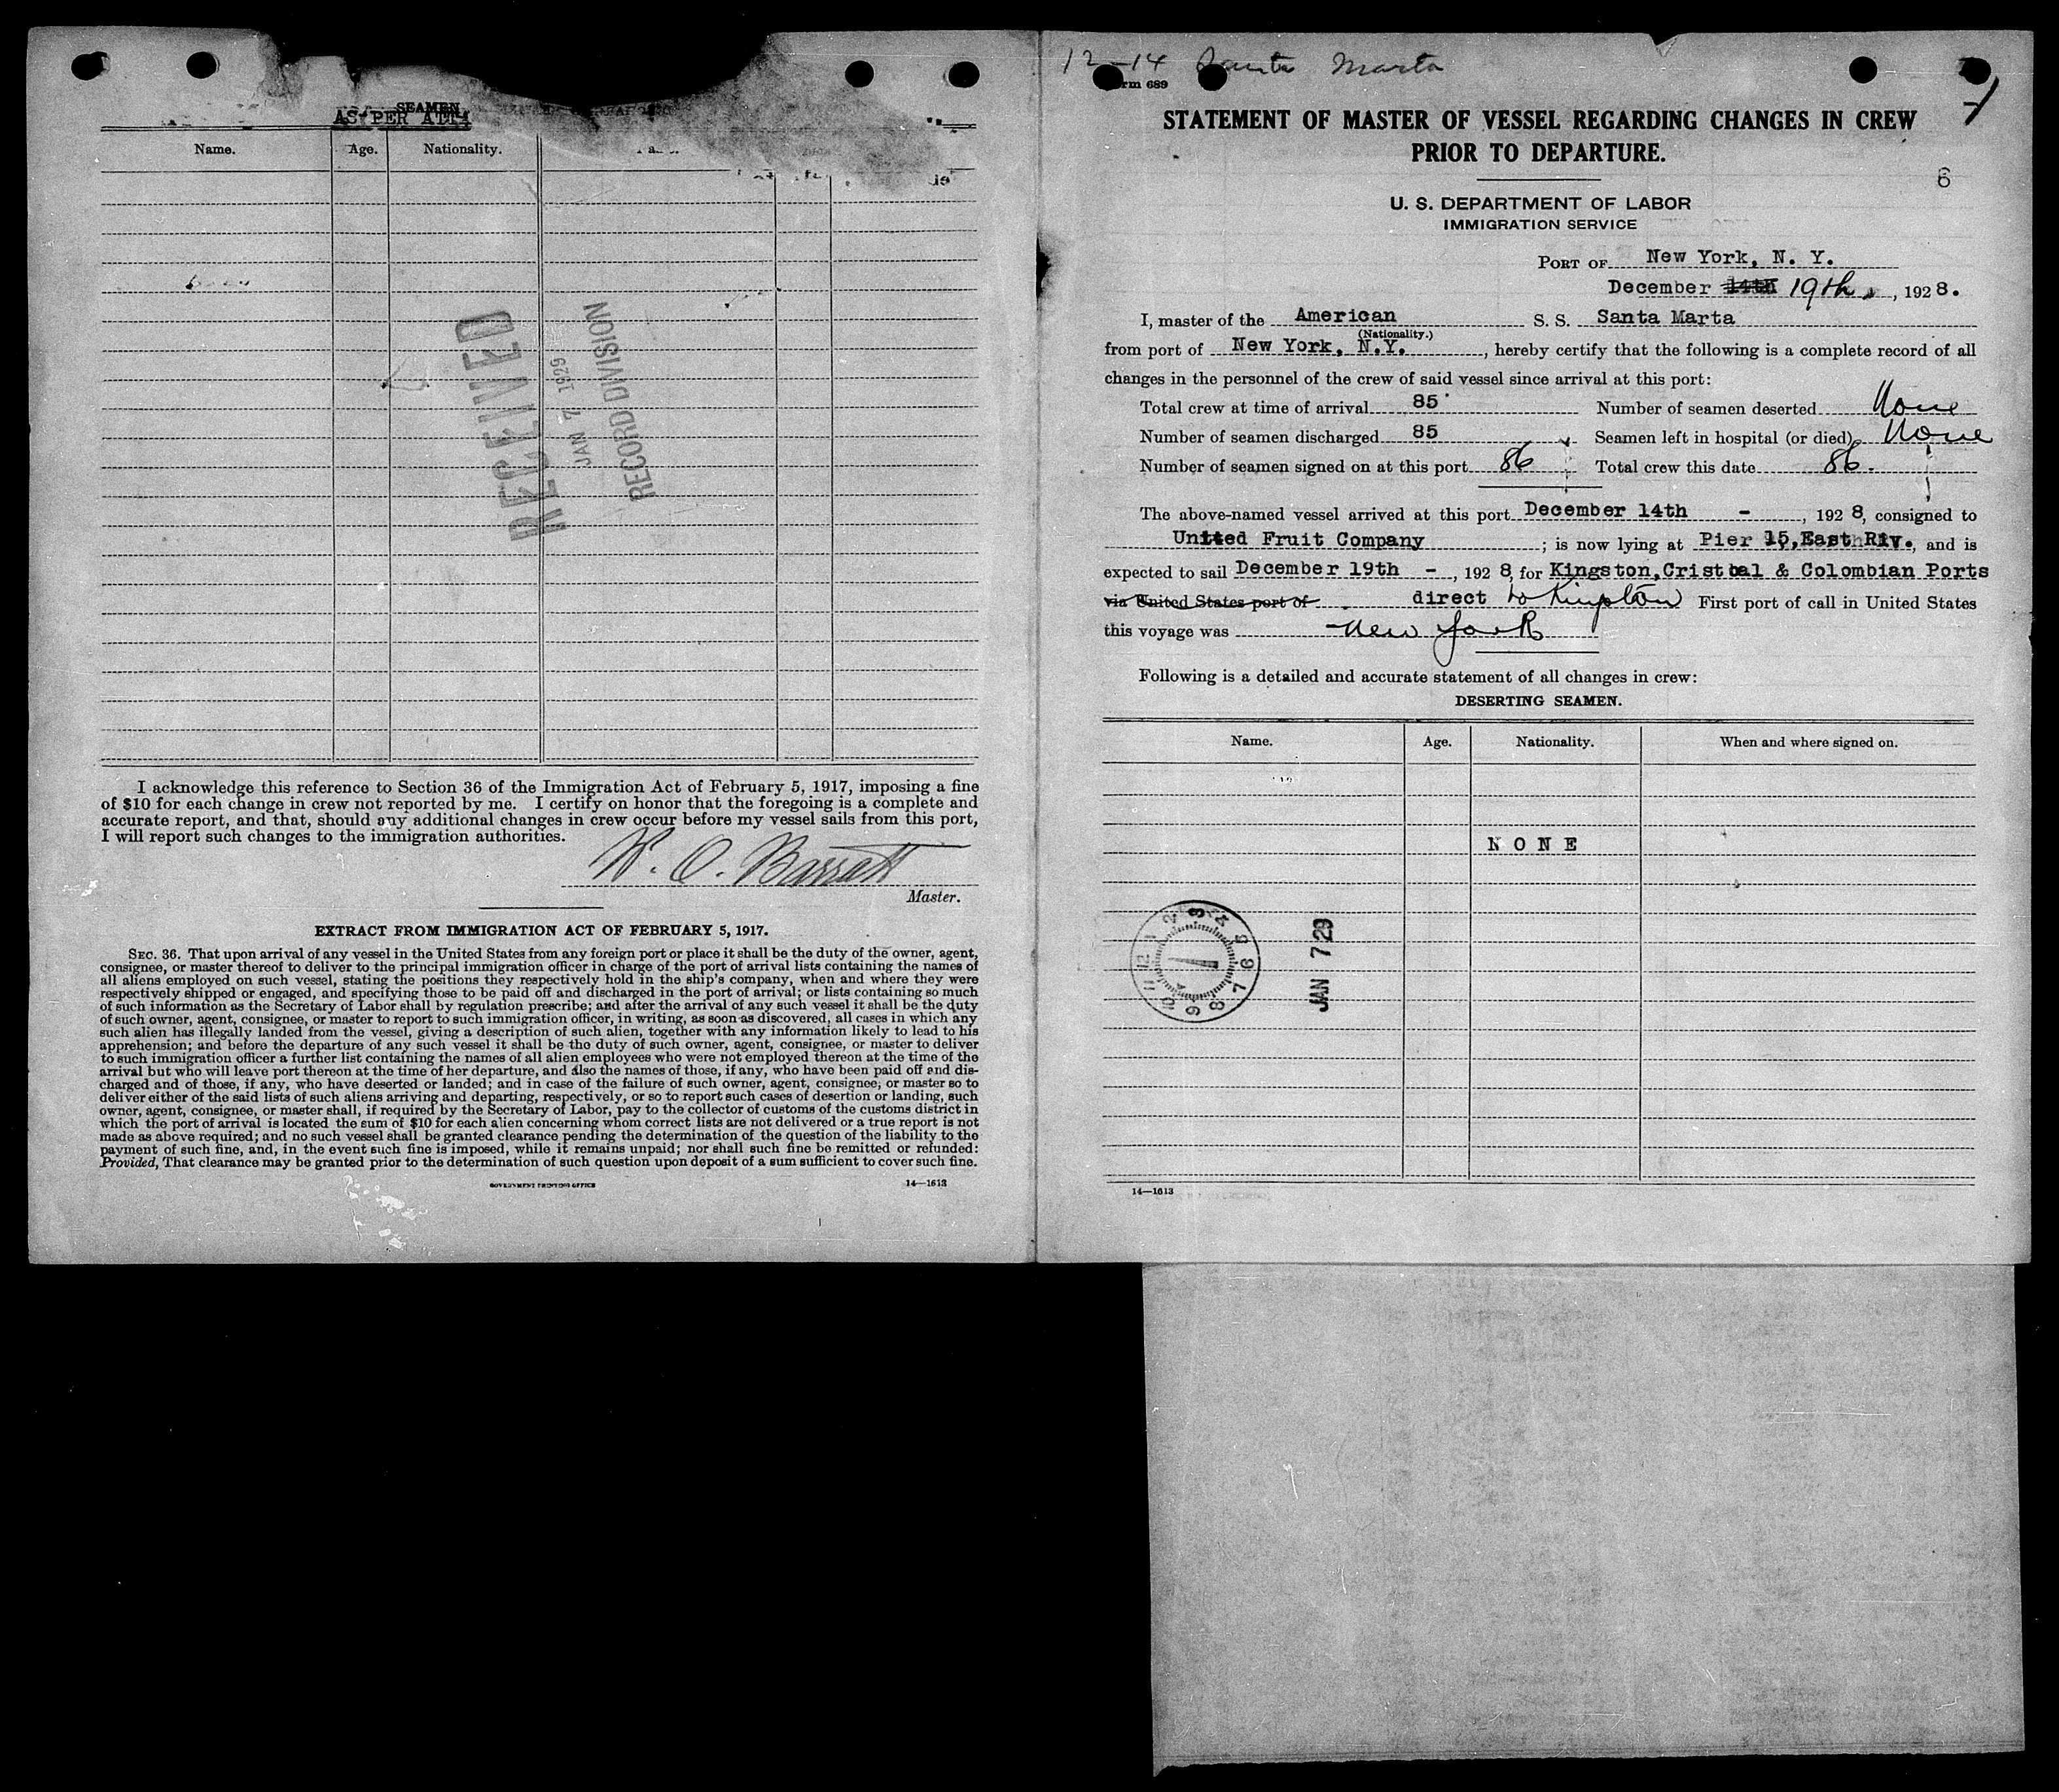 SEAMEN
AS PER ATT
Name. Age. Nationality.
RECEIVED
JAN 7 1929
RECORD DIVISION
I acknowledge this reference to Section 36 of the Immigration Act of February 5, 1917, imposing a fine
of $10 for each change in crew not reported by me. I certify on honor that the foregoing is a complete and
accurate report, and that, should any additional changes in crew occur before my vessel sails from this port,
I will report such changes to the immigration authorities.
W. O. Barrett
Master.
EXTRACT FROM IMMIGRATION ACT OF FEBRUARY 5, 1917.
SEC. 36. That upon arrival of any vessel in the United States from any foreign port or place it shall be the duty of the owner, agent,
consignee, or master thereof to deliver to the principal immigration officer in charge of the port of arrival lists containing the names of
all aliens employed on such vessel, stating the positions they respectively hold in the ship's company, when and where they were
respectively shipped or engaged, and specifying those to be paid off and discharged in the port of arrival; or lists containing so much
of such information as the Secretary of Labor shall by regulation prescribe; and after the arrival of any such vessel it shall be the duty
of such owner, agent, consignee, or master to report to such immigration officer, in writing, as soon as discovered, all cases in which any
such alien has illegally landed from the vessel, giving a description of such alien, together with any information likely to lead to his
apprehension; and before the departure of any such vessel it shall be the duty of such owner, agent, consignee, or master to deliver
to such immigration officer a further list containing the names of all alien employees who were not employed thereon at the time of the
arrival but who will leave port thereon at the time of her departure, and also the names of those, if any, who have been paid off and dis-
charged and of those, if any, who have deserted or landed; and in case of the failure of such owner, agent, consignee, or master so to
deliver either of the said lists of such aliens arriving and departing, respectively, or so to report such cases of desertion or landing, such
owner, agent, consignee, or master shall, if required by the Secretary of Labor, pay to the collector of customs of the customs district in
which the port of arrival is located the sum of $10 for each alien concerning whom correct lists are not delivered or a true report is not
made as above required; and no such vessel shall be granted clearance pending the determination of the question of the liability to the
payment of such fine, and, in the event such fine is imposed, while it remains unpaid; nor shall such fine be remitted or refunded:
Provided, That clearance may be granted prior to the determination of such question upon deposit of a sum sufficient to cover such fine.
GOVERNMENT PRINTING OFFICE 14—1613
12-14 Santa Marta
rm 689
STATEMENT OF MASTER OF VESSEL REGARDING CHANGES IN CREW
PRIOR TO DEPARTURE.
6
U. S. DEPARTMENT OF LABOR
IMMIGRATION SERVICE
PORT OF New York, N. Y.
December 14th 19th, 1928.
I, master of the American S. S. Santa Marta
(Nationality.)
from port of New York, N.Y., hereby certify that the following is a complete record of all
changes in the personnel of the crew of said vessel since arrival at this port:
Total crew at time of arrival 85 Number of seamen deserted None
Number of seamen discharged 85 Seamen left in hospital (or died) None
Number of seamen signed on at this port 86 Total crew this date 86.
The above-named vessel arrived at this port December 14th - , 1928, consigned to
United Fruit Company ; is now lying at Pier 15, East Riv., and is
expected to sail December 19th - , 1928, for Kingston, Cristobal & Colombian Ports
via United States port of direct to Kingston First port of call in United States
this voyage was New York
Following is a detailed and accurate statement of all changes in crew:
DESERTING SEAMEN.
Name. Age. Nationality. When and where signed on.
NONE
1 2 3 4 5 6 7 8 9 10 11 12
JAN 7 29
14—1613